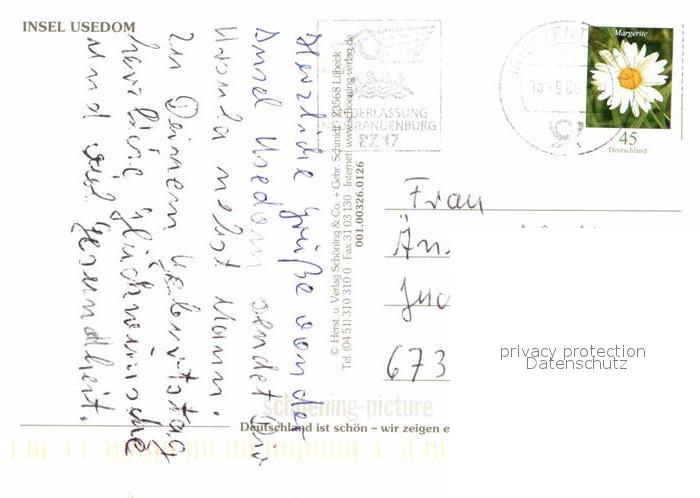 INSEL USEDOM
Herzliche Grüße von der
Insel Usedom sendet Dir
Ursula nebst Mann.
Zu Deinem Geburtstag
herzliche Glückwünsche
und viel Gesundheit.
© Herst. u. Verlag Schöning & Co. + Gebr. Schmidt, 23568 Lübeck
Tel. (04 51) 310 310 0 · Fax 31 03 130 · Internet: www.schoening-verlag.de
001.00326.0126
NIEDERLASSUNG
BRANDENBURG
BZ 17
Margerite
45
Deutschland
Frau
673
privacy protection
Datenschutz
schoening-picture
Deutschland ist schön – wir zeigen e